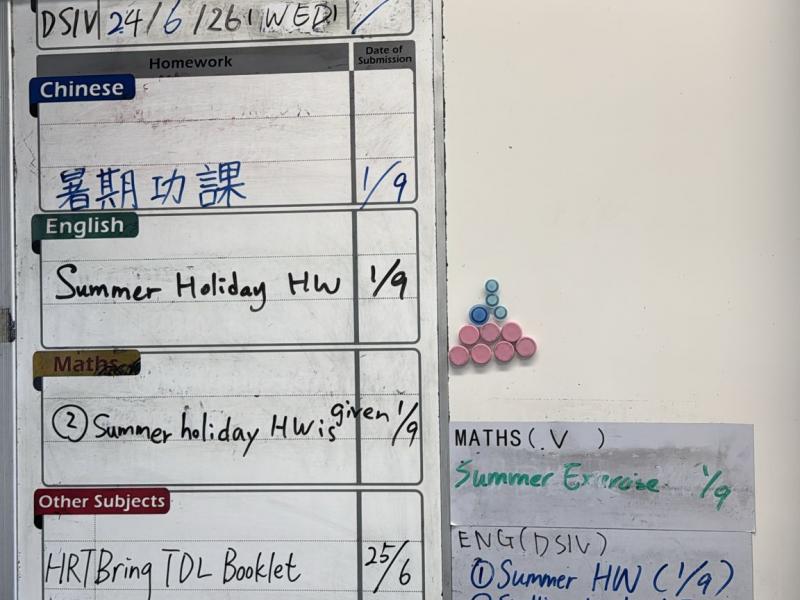 DSIV 24/6/26 (WED)
Homework Date of Submission
Chinese
暑期功課 1/9
English
Summer Holiday HW 1/9
Maths
② Summer holiday HW is given 1/9
Other Subjects
HRT Bring TDL Booklet 25/6
MATHS( V )
Summer Exercise 1/9
ENG(DSIV)
① Summer HW (1/9)